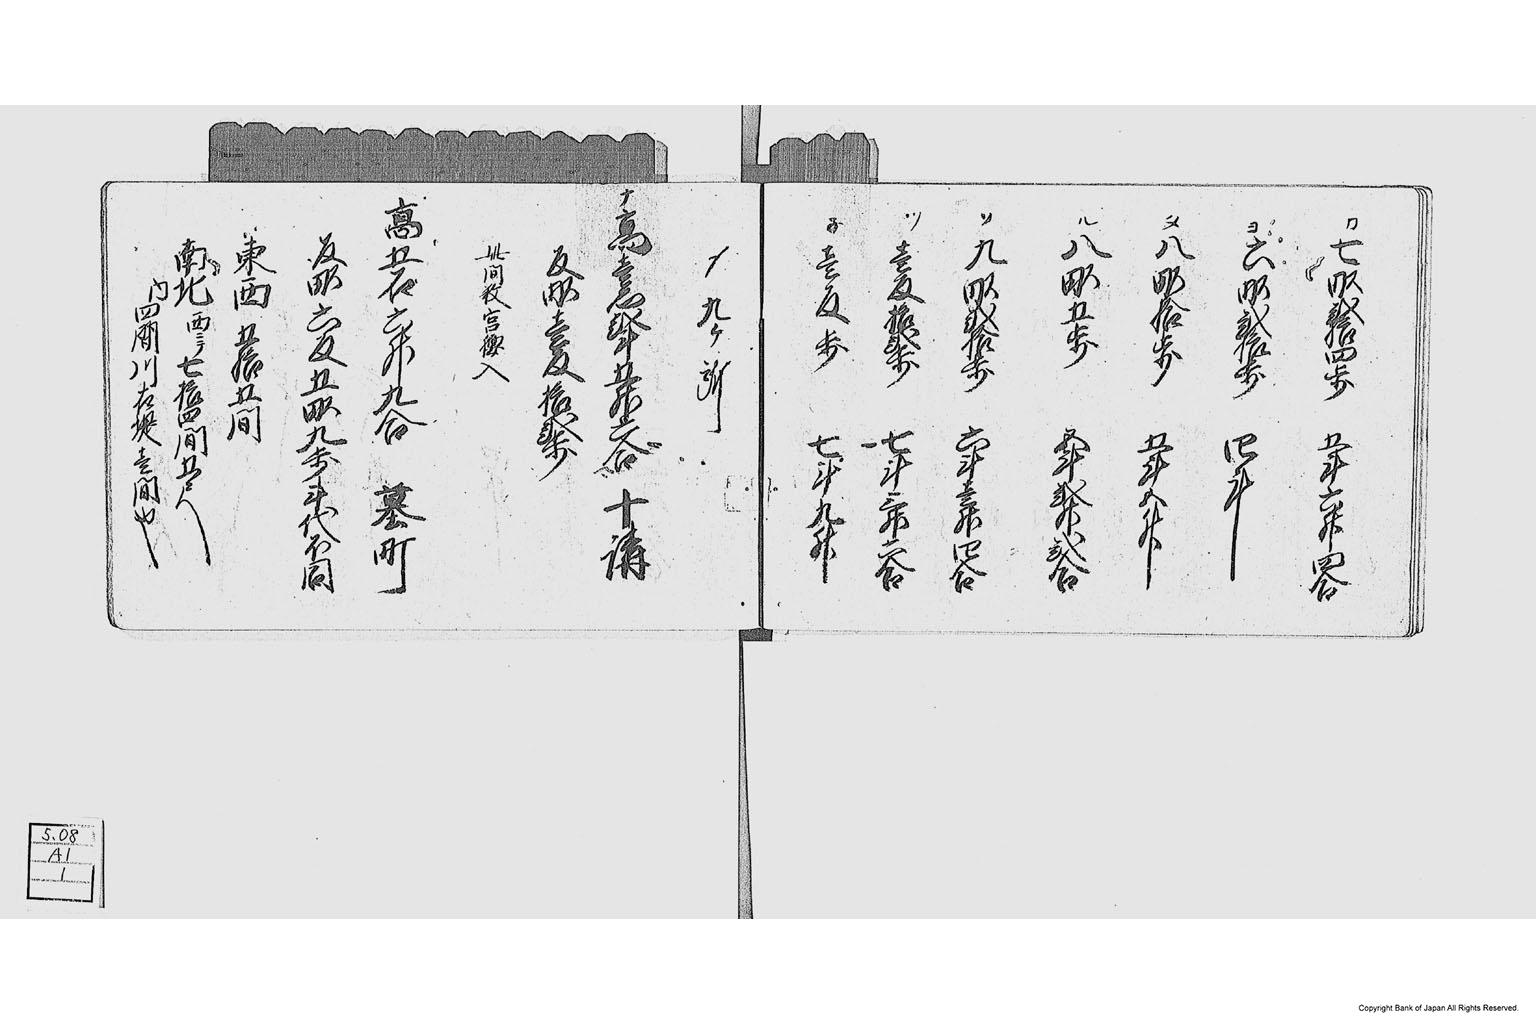 カ 七畝弐拾四歩 五斗六升四合
ヨ 六畝弐拾歩 四斗
ヌ 八畝拾歩 五斗八升
ル 八畝五歩 五斗弐升弐合
ソ 九畝弐拾歩 六斗壱升四合
ツ 壱反拾弐歩 七斗三升六合
ネ 壱反歩 七斗九升
〆 九ヶ所
ナ 高壱石弐斗五升六合 十講
反畝壱反拾弐歩
此間数宮徼入
高五石六升九合 墓町
反畝六反五畝九歩斗代不同
東西 五拾五間
南北 西ニテ 七拾四間五尺
内四間川右堤壱間也
5.08
A1
1
Copyright Bank of Japan All Rights Reserved.